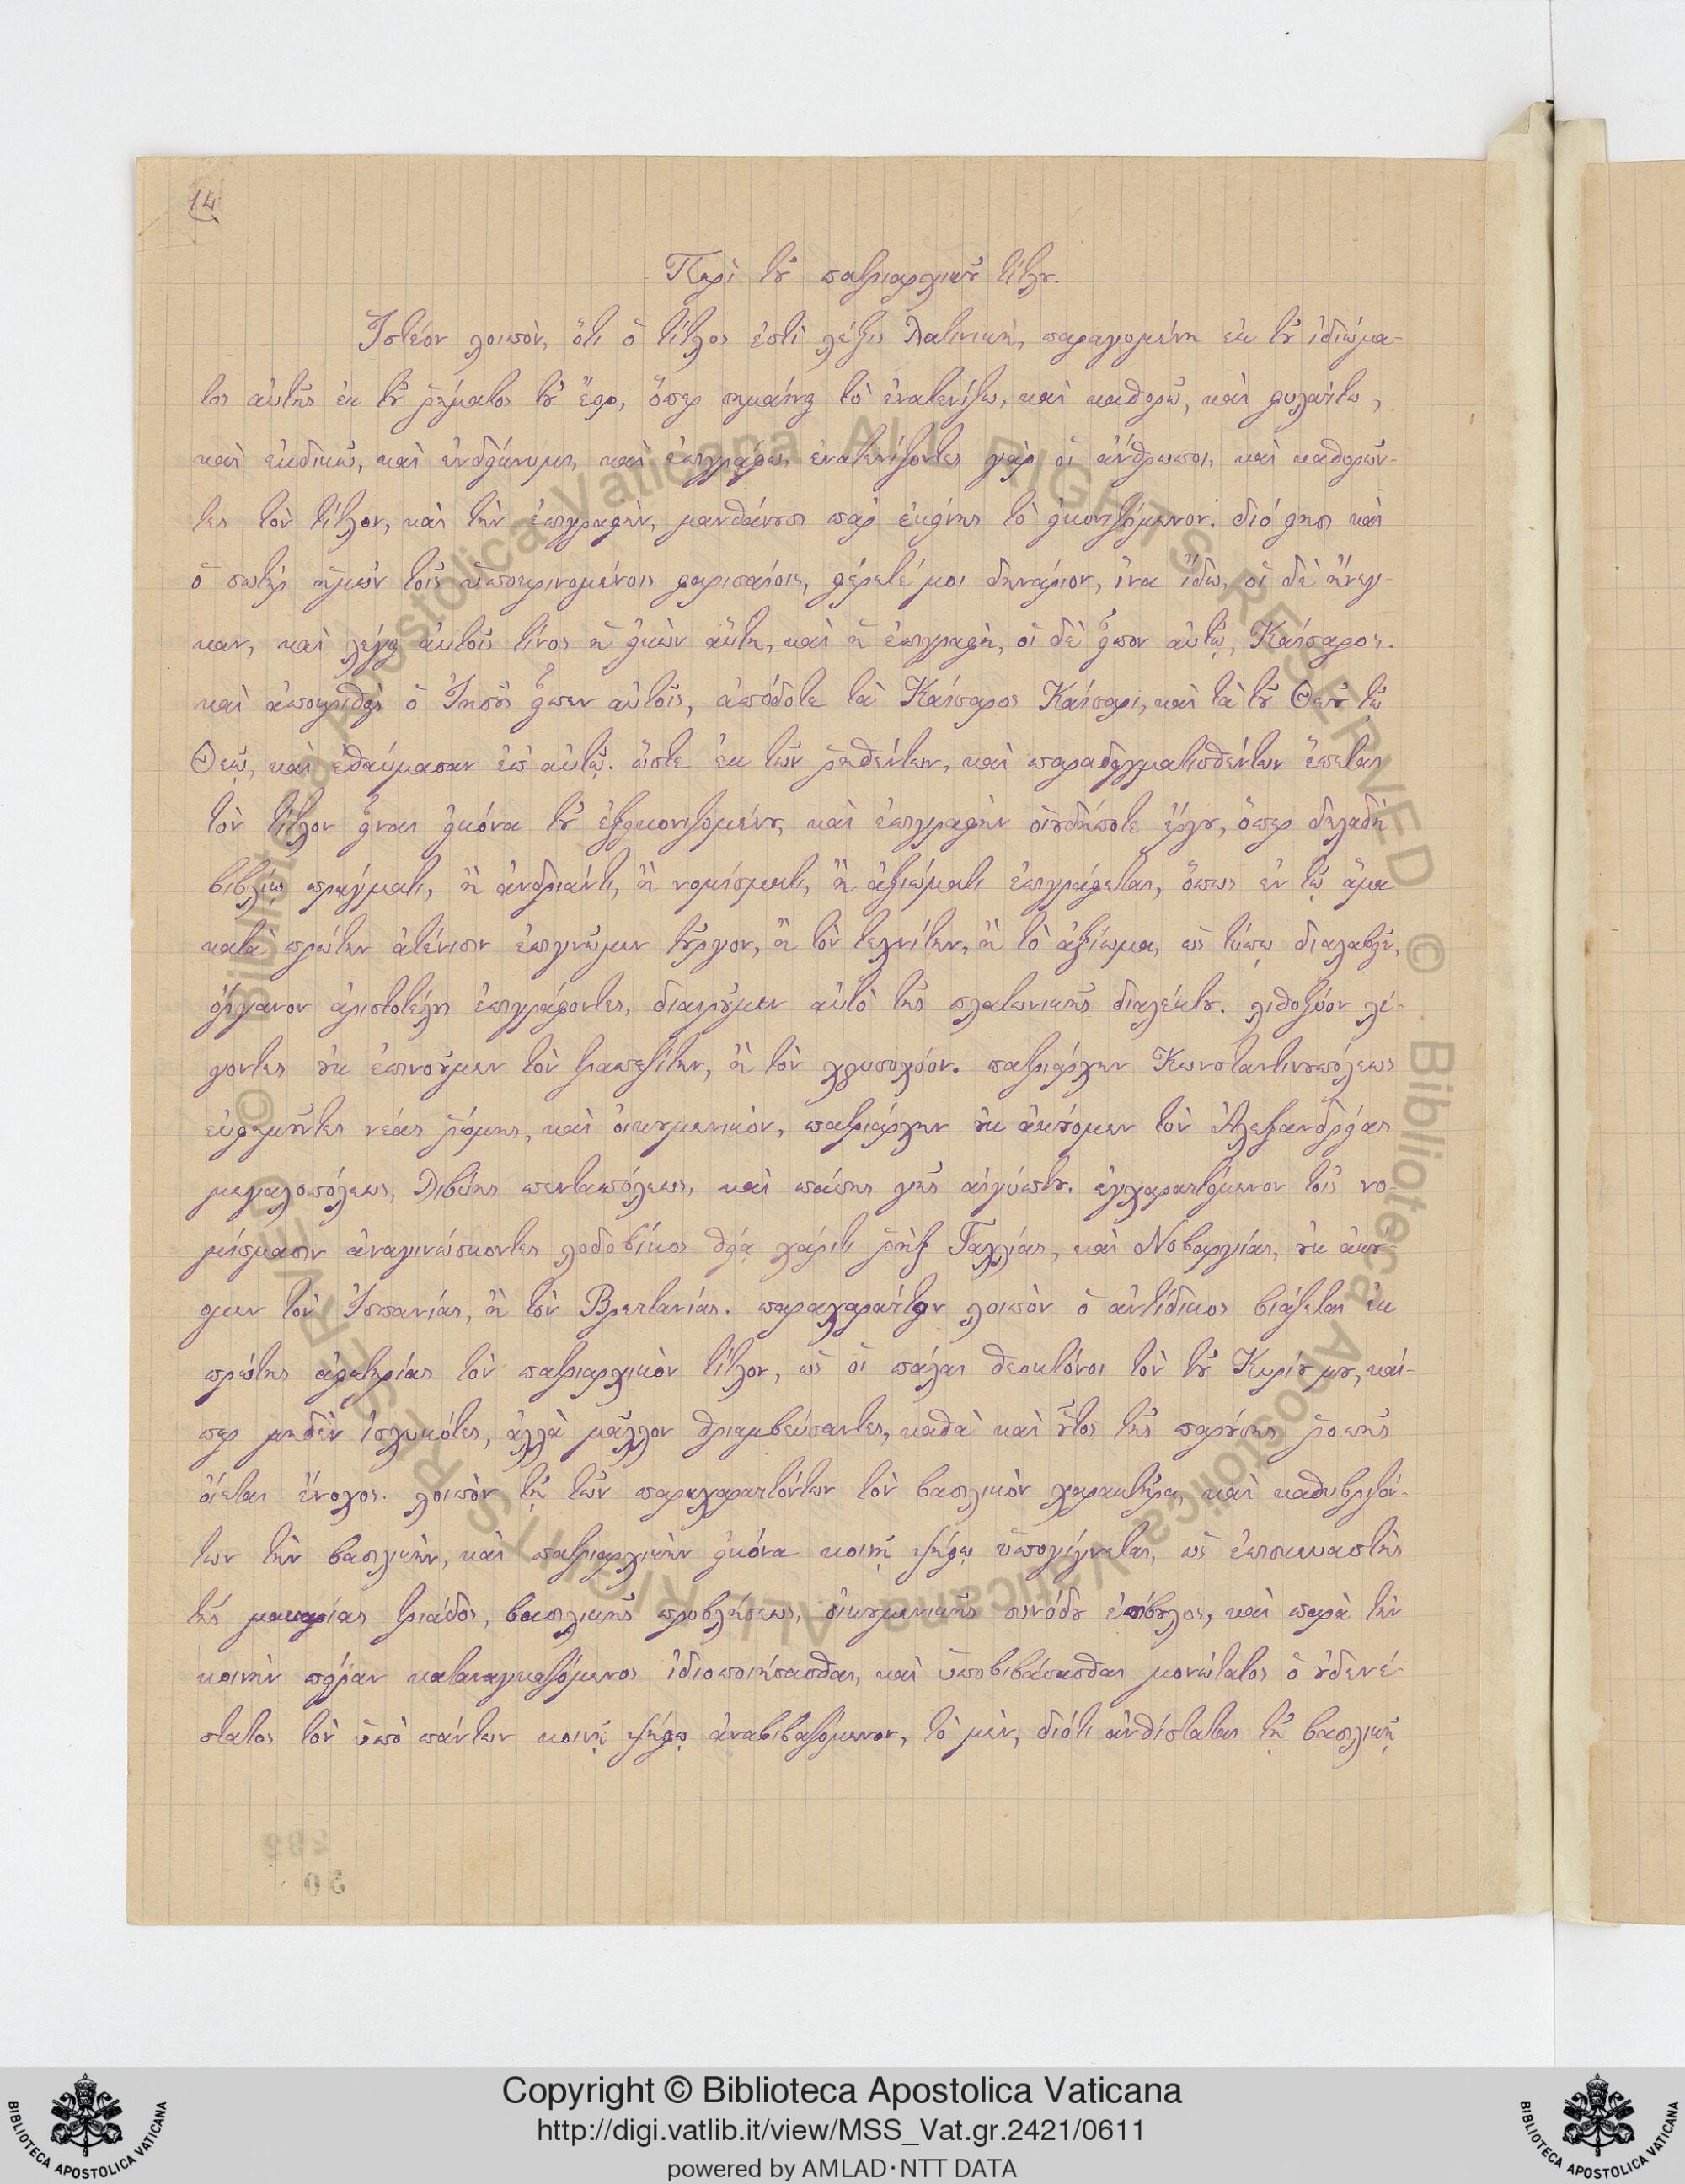 14
Περὶ τοῦ πατριαρχικοῦ τίτλου.
Ἰστέον λοιπὸν, ὅτι ὁ τίτλος ἐστὶ λέξις λατινικὴ, παραγομένη ἐκ τοῦ ἰδιώμα-
τος αὐτῆς ἐκ τοῦ ῥήματος τοῦ ὅπερ σημαίνει τὸ ἐνατενίζω, καὶ καθορῶ, καὶ φυλάττω,
καὶ ἐκδικῶ, καὶ ἐνδείκνυμι, καὶ ἐπιγράφω, ἐνατενίζοντες γὰρ οἱ ἄνθρωποι, καὶ καθορῶν-
τες τὸν τίτλον, καὶ τὴν ἐπιγραφὴν, μανθάνουσι παρ' ἐκείνης τὸ εἰκονιζόμενον. διό φησι καὶ
ὁ σωτὴρ ἡμῶν τοῖς ὑποκρινομένοις φαρισαίοις, φέρετέ μοι δηνάριον, ἵνα ἴδω, οἱ δὲ ἤνεγ-
καν, καὶ λέγει αὐτοῖς τίνος ἡ εἰκὼν αὕτη, καὶ ἡ ἐπιγραφὴ, οἱ δὲ εἶπον αὐτῷ, Καίσαρος.
καὶ ἀποκριθεὶς ὁ Ἰησοῦς εἶπεν αὐτοῖς, ἀπόδοτε τὰ Καίσαρος Καίσαρι, καὶ τὰ τοῦ Θεοῦ τῷ
Θεῷ, καὶ ἐθαύμασαν ἐπ' αὐτῷ. ὥστε ἐκ τῶν ῥηθέντων, καὶ παραδειγματισθέντων ἕπεται
τὸν τίτλον εἶναι εἰκόνα τοῦ ἐξεικονιζομένου, καὶ ἐπιγραφὴν οἱουδήποτε ἔργου, ὅπερ δηλαδὴ
βιβλίῳ πράγματι, ἢ ἀνδριάντι, ἢ νομίσματι, ἢ ἀξιώματι ἐπιγράφεται, ὅπως ἐν τῷ ἅμα
κατὰ πρώτην ἀτένισιν ἐπιγνῶμεν τοὖργον, ἢ τὸν τεχνίτην, ἢ τὸ ἀξίωμα, ὡς τύπῳ διαλαβεῖν,
ὄργανον ἀριστοτέλους ἐπιγράφοντες, διαιροῦμεν αὐτὸ τῆς πλατωνικῆς διαλέκτου. λιθοξόον λέ-
γοντες οὐκ ἐπινοοῦμεν τὸν τραπεζίτην, ἢ τὸν χρυσοχόον. πατριάρχην Κωνσταντινουπόλεως
εὐφημοῦντες νέας ῥώμης, καὶ οἰκουμενικὸν, πατριάρχην οὐκ ἀκούομεν τὸν Ἀλεξανδρείας
μεγαλοπόλεως, Λιβύης πενταπόλεως, καὶ πάσης γῆς αἰγύπτου. ἐγχαραττόμενον τοῖς νο-
μίσμασιν ἀναγινώσκοντες λοδοβίκος θείᾳ χάριτι ῥὴξ Γαλλίας, καὶ Νοβαρρίας, οὐκ ἀκού-
ομεν τὸν Ἱσπανίας, ἢ τὸν Βρετανίας. παραχαράττειν λοιπὸν ὁ ἀντίδικος βιάζεται ἐκ
πρώτης ἀφετηρίας τὸν πατριαρχικὸν τίτλον, ὡς οἱ πάλαι θεοκτόνοι τὸν τοῦ Κυρίου μου, καί-
περ μηδὲν ἰσχυκότες, ἀλλὰ μᾶλλον θριαμβεύσαντες, καθὰ καὶ οὗτος τῆς παρούσης ῥοπῆς
οἴεται ἔνοχος. λοιπὸν τῇ τῶν παραχαραττόντων τὸν βασιλικὸν χαρακτῆρα, καὶ καθυβριζόν-
των τὴν βασιλικὴν, καὶ πατριαρχικὴν εἰκόνα κοινῇ ψήφῳ ὑπογίγνεται, ὡς ἐπισκυαστὴς
τῆς μακαρίας τριάδος, βασιλικῆς προβλήσεως, οἰκουμενικῆς συνόδου ἐπίβουλος, καὶ παρὰ τὴν
κοινὴν πεῖραν καταναγκαζόμενος ἰδιοποιήσασθαι, καὶ ὑποβιβάσασθαι μονώτατος ὁ οὐδενέ-
στατος τὸν ὑπὸ πάντων κοινῇ ψήφῳ ἀναβιβαζόμενον, τὸ μὲν, διότι ἀνθίσταται τῇ βασιλικῇ
Copyright © Biblioteca Apostolica Vaticana
http://digi.vatlib.it/view/MSS_Vat.gr.2421/0611
powered by AMLAD·NTT DATA